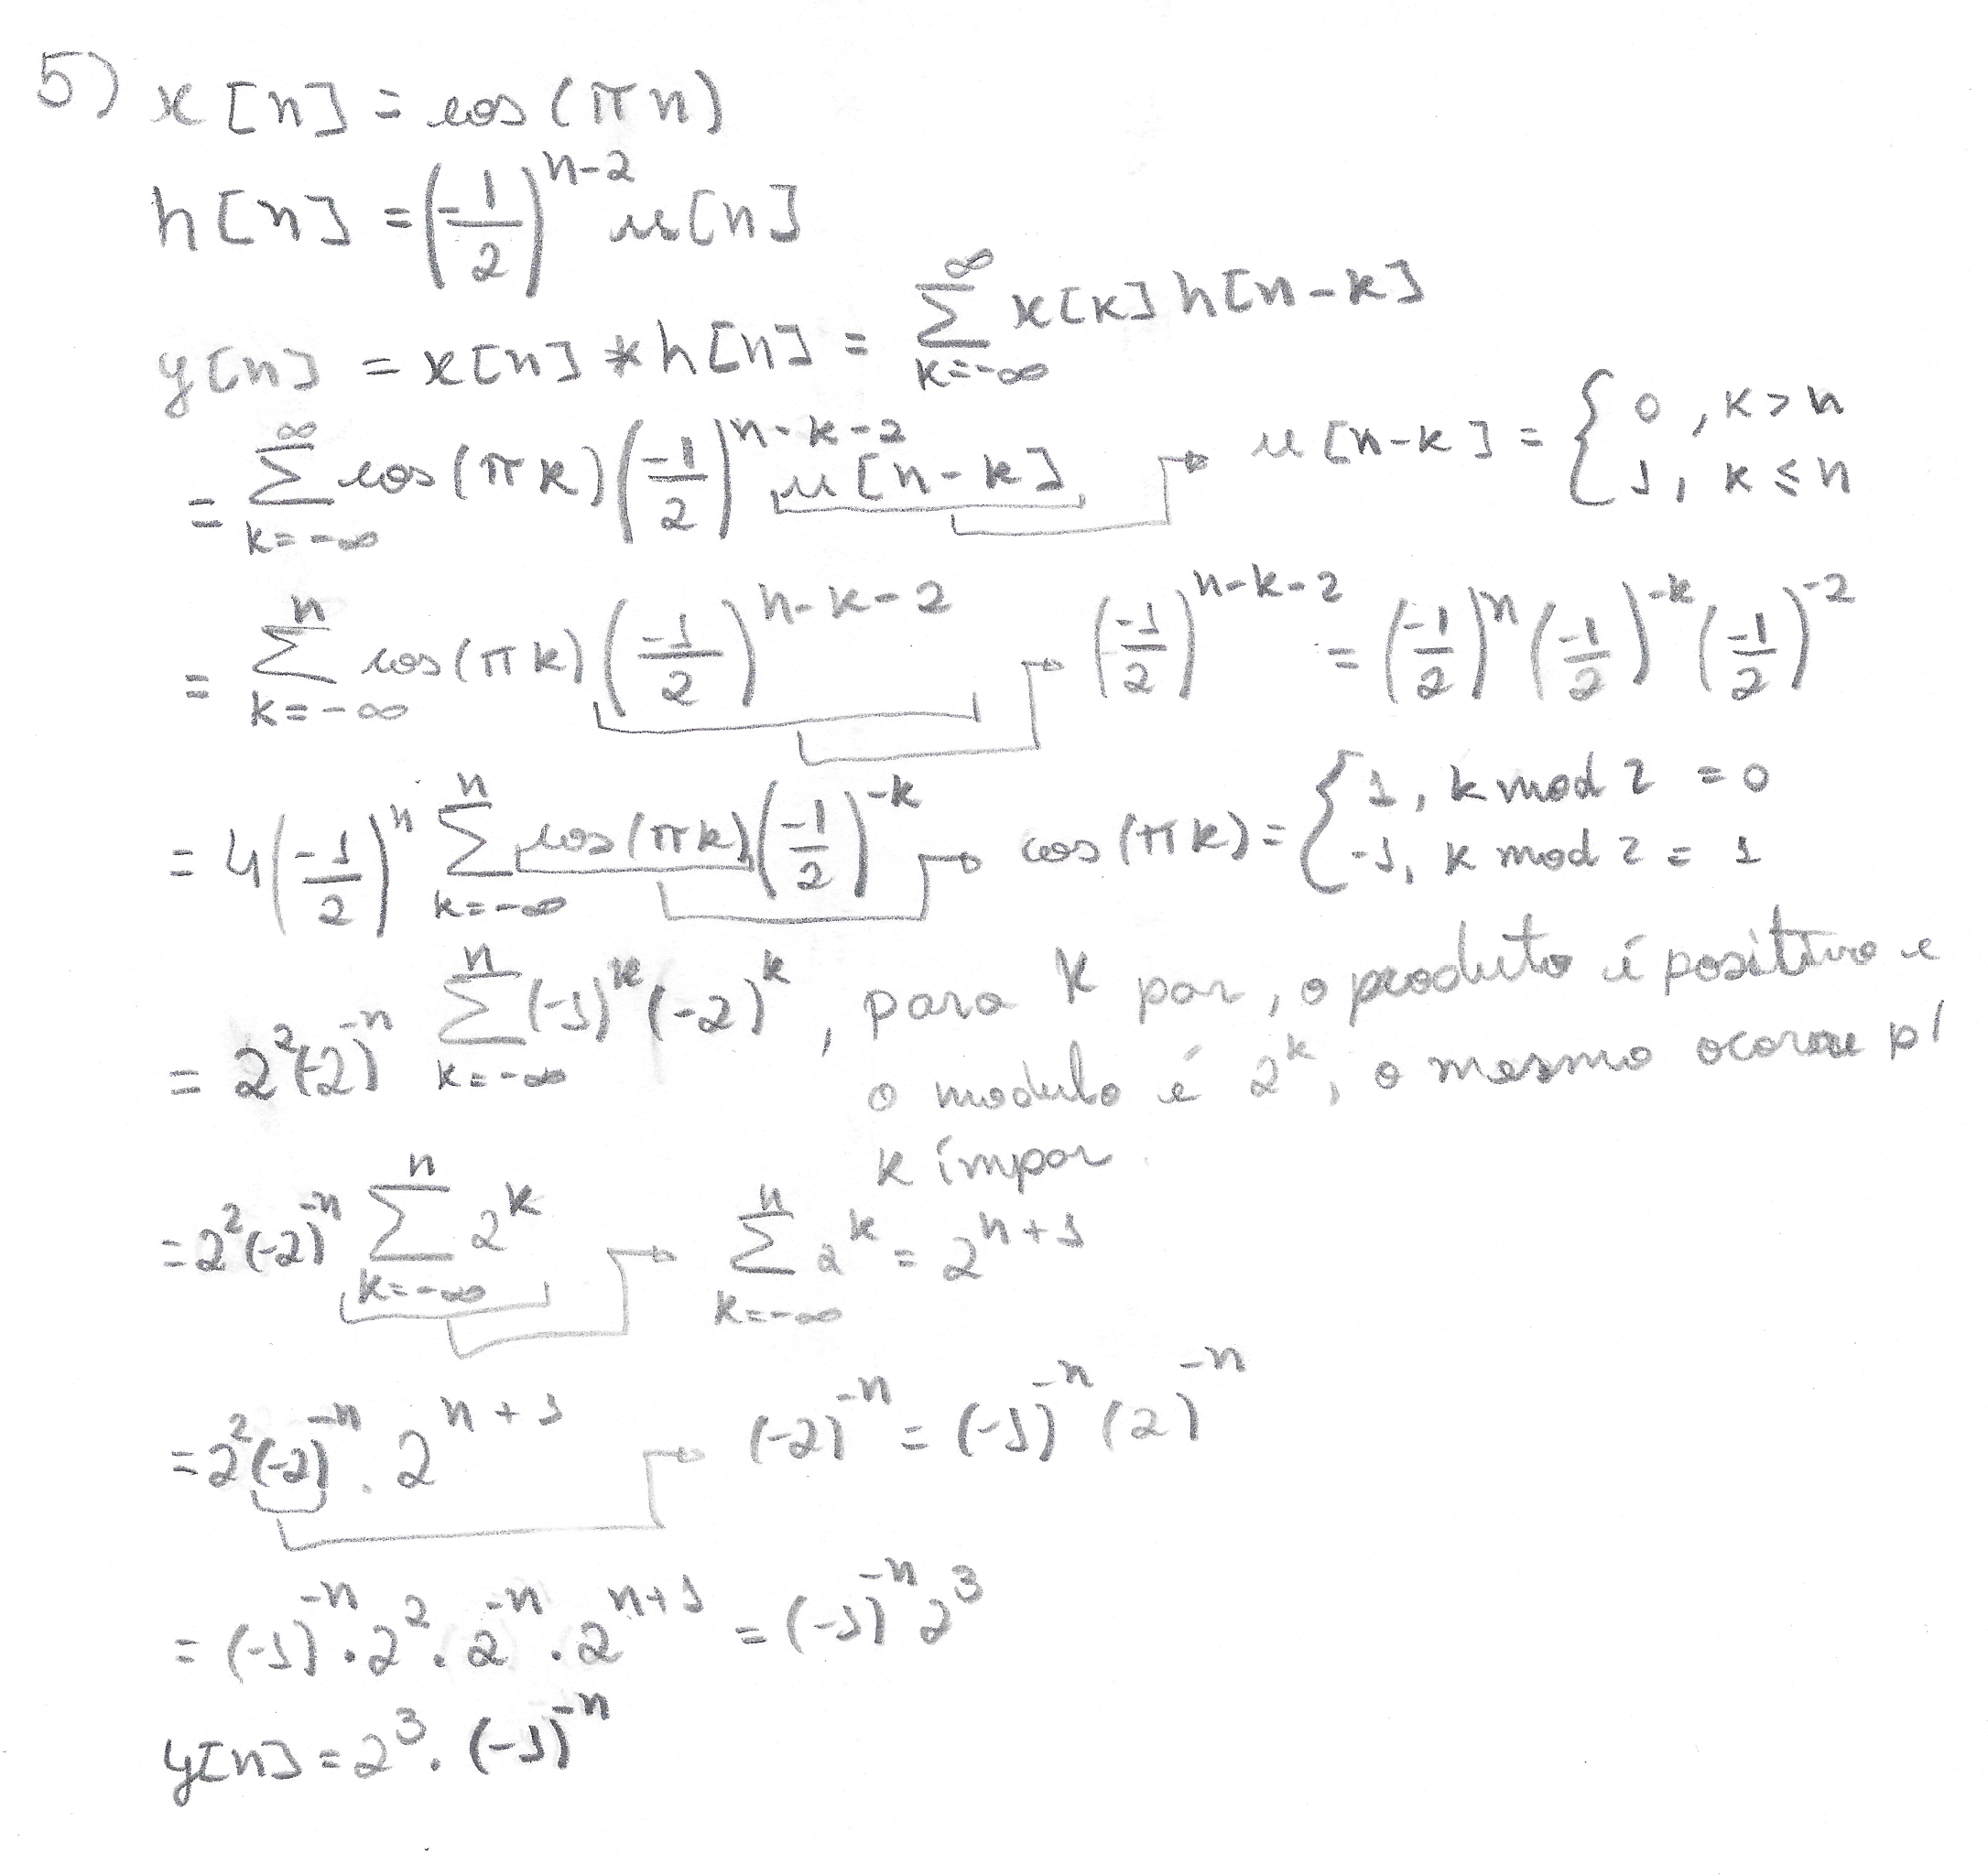 5) x[n] = cos(πn)
h[n] = (-1/2)^{n-2} u[n]
y[n] = x[n] * h[n] = ∑_{k=-∞}^{∞} x[k] h[n-k]
= ∑_{k=-∞}^{∞} cos(πk) (-1/2)^{n-k-2} u[n-k] → u[n-k] = { 0, k>n ; 1, k≤n
= ∑_{k=-∞}^{n} cos(πk) (-1/2)^{n-k-2} → (-1/2)^{n-k-2} = (-1/2)^n (-1/2)^{-k} (-1/2)^{-2}
= 4(-1/2)^n ∑_{k=-∞}^{n} cos(πk) (-1/2)^{-k} → cos(πk) = { 1, k mod 2 = 0 ; -1, k mod 2 = 1
= 2^2(-2)^{-n} ∑_{k=-∞}^{n} (-1)^k (-2)^k, para k par, o produto é positivo e
o modulo é 2^k, o mesmo ocorre p/
k ímpar
= 2^2(-2)^{-n} ∑_{k=-∞}^{n} 2^k → ∑_{k=-∞}^{n} 2^k = 2^{n+1}
= 2^2(-2)^{-n} . 2^{n+1} → (-2)^{-n} = (-1)^{-n} (2)^{-n}
= (-1)^{-n} . 2^2 . 2^{-n} . 2^{n+1} = (-1)^{-n} 2^3
y[n] = 2^3 . (-1)^{-n}